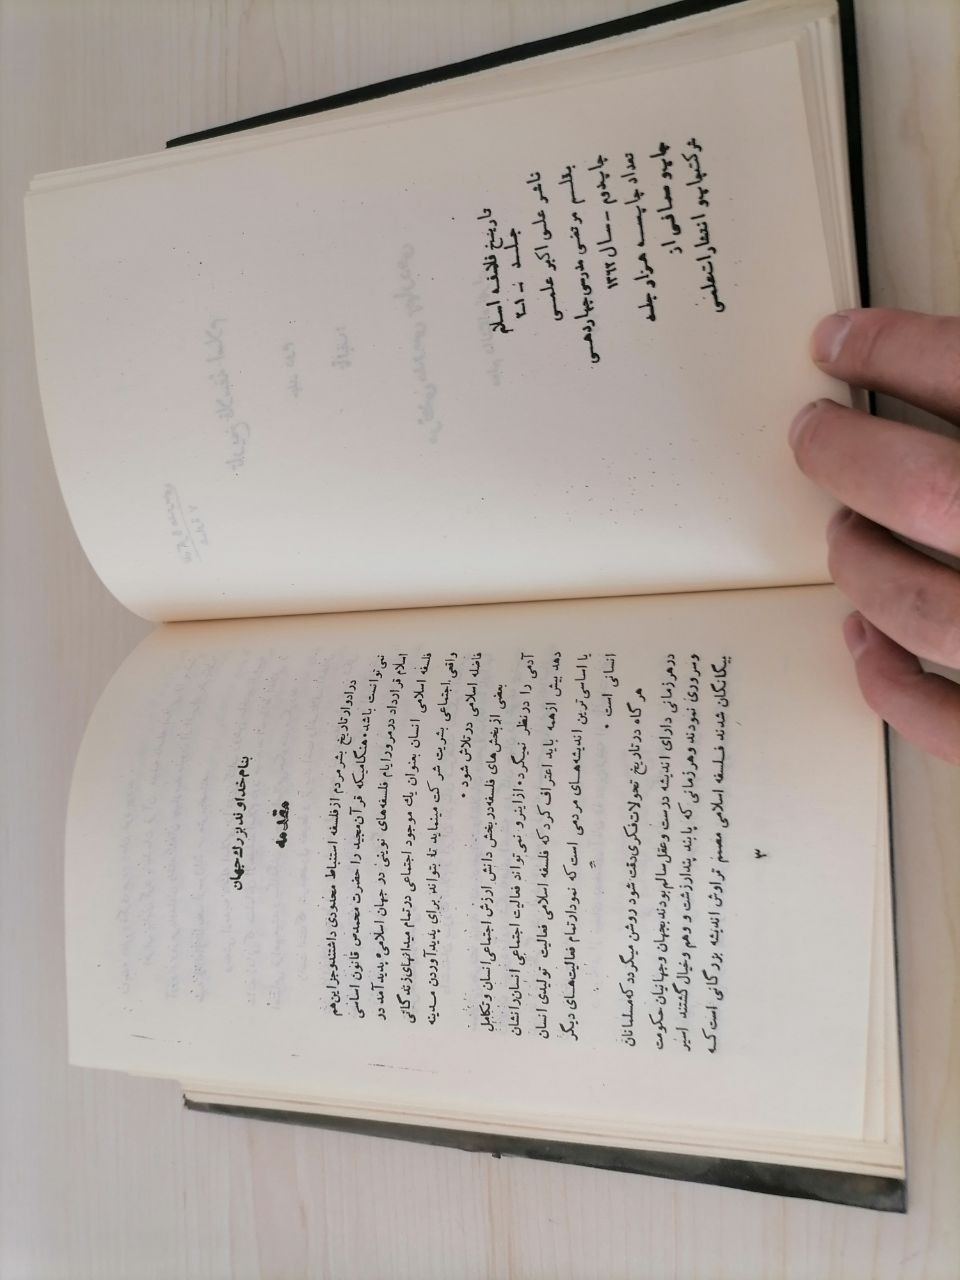 تاریخ فلاسفه اسلام
جلد ۲-۱
ناشر علی اکبر علمی
بقلم مرتضی مدرسی چهاردهی
چاپ دوم - سال ۱۳۶۲
تعداد چاپ سه هزار جلد
چاپ و صحافی از
شرکت چاپ و انتشارات علمی
بنام خداوند بزرك جهان
مقدمه
در ادوار تاریخ بشر مردم از فلسفه استنباط محدودی داشتند و جز این هم
نمی توانست باشد. هنگامیکه قرآن مجید را حضرت محمد ص قانون اساسی
اسلام قرارداد در مرور ایام فلسفه های نوینی در جهان اسلامی پدید آمد در
فلسفه اسلامی انسان بعنوان یك موجود اجتماعی در تمام میدانهای زندگانی
واقعی اجتماعی بشریت شرکت مینماید تا بتواند برای پدید آوردن مدینه
فاضله اسلامی در تلاش شود .
بعضی از بخش های فلسفه در بخش دانش ارزش اجتماعی انسان و تکامل
آدمی را در نظر نمیگرد. از اینرو نمی تواند فعالیت اجتماعی انسان را نشان
دهد بیش از همه باید اعتراف کرد که فلسفه اسلامی فعالیت تولیدی انسان
با اساسی ترین اندیشه های مردمی است که نمودار تمام فعالیت های دیگر
انسانی است .
هر گاه در تاریخ تحولات فکری دقت شود روشن میگردد که مسلمانان
در هر زمانی دارای اندیشه درست و عقل سالم بودند بجهان و جهانیان حکومت
و سروری نمودند و هر زمانی که پابند پندار زشت و وهم و خیال گشتند اسیر
بیگانگان شدند فلسفه اسلامی مصمم تراوش اندیشه بزرگانی است که
۳